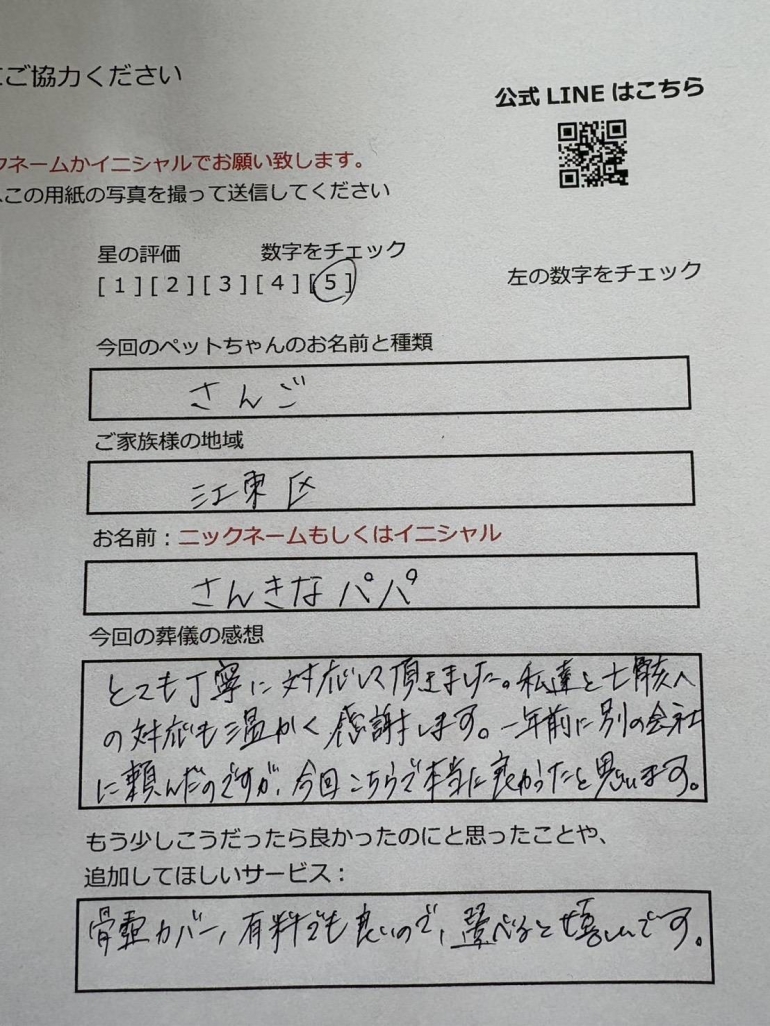 にご協力ください
公式 LINE はこちら
クネームかイニシャルでお願い致します。
この用紙の写真を撮って送信してください
星の評価 数字をチェック
[ 1 ] [ 2 ] [ 3 ] [ 4 ] [ 5 ]
左の数字をチェック
今回のペットちゃんのお名前と種類
さんご
ご家族様の地域
江東区
お名前：ニックネームもしくはイニシャル
さんきなパパ
今回の葬儀の感想
とても丁寧に対応して頂きました。私達と亡骸へ
の対応も温かく感謝します。一年前に別の会社
に頼んだのですが、今回こちらで本当に良かったと思います。
もう少しこうだったら良かったのにと思ったことや、
追加してほしいサービス：
骨壷カバー、有料でも良いので、選べると嬉しいです。